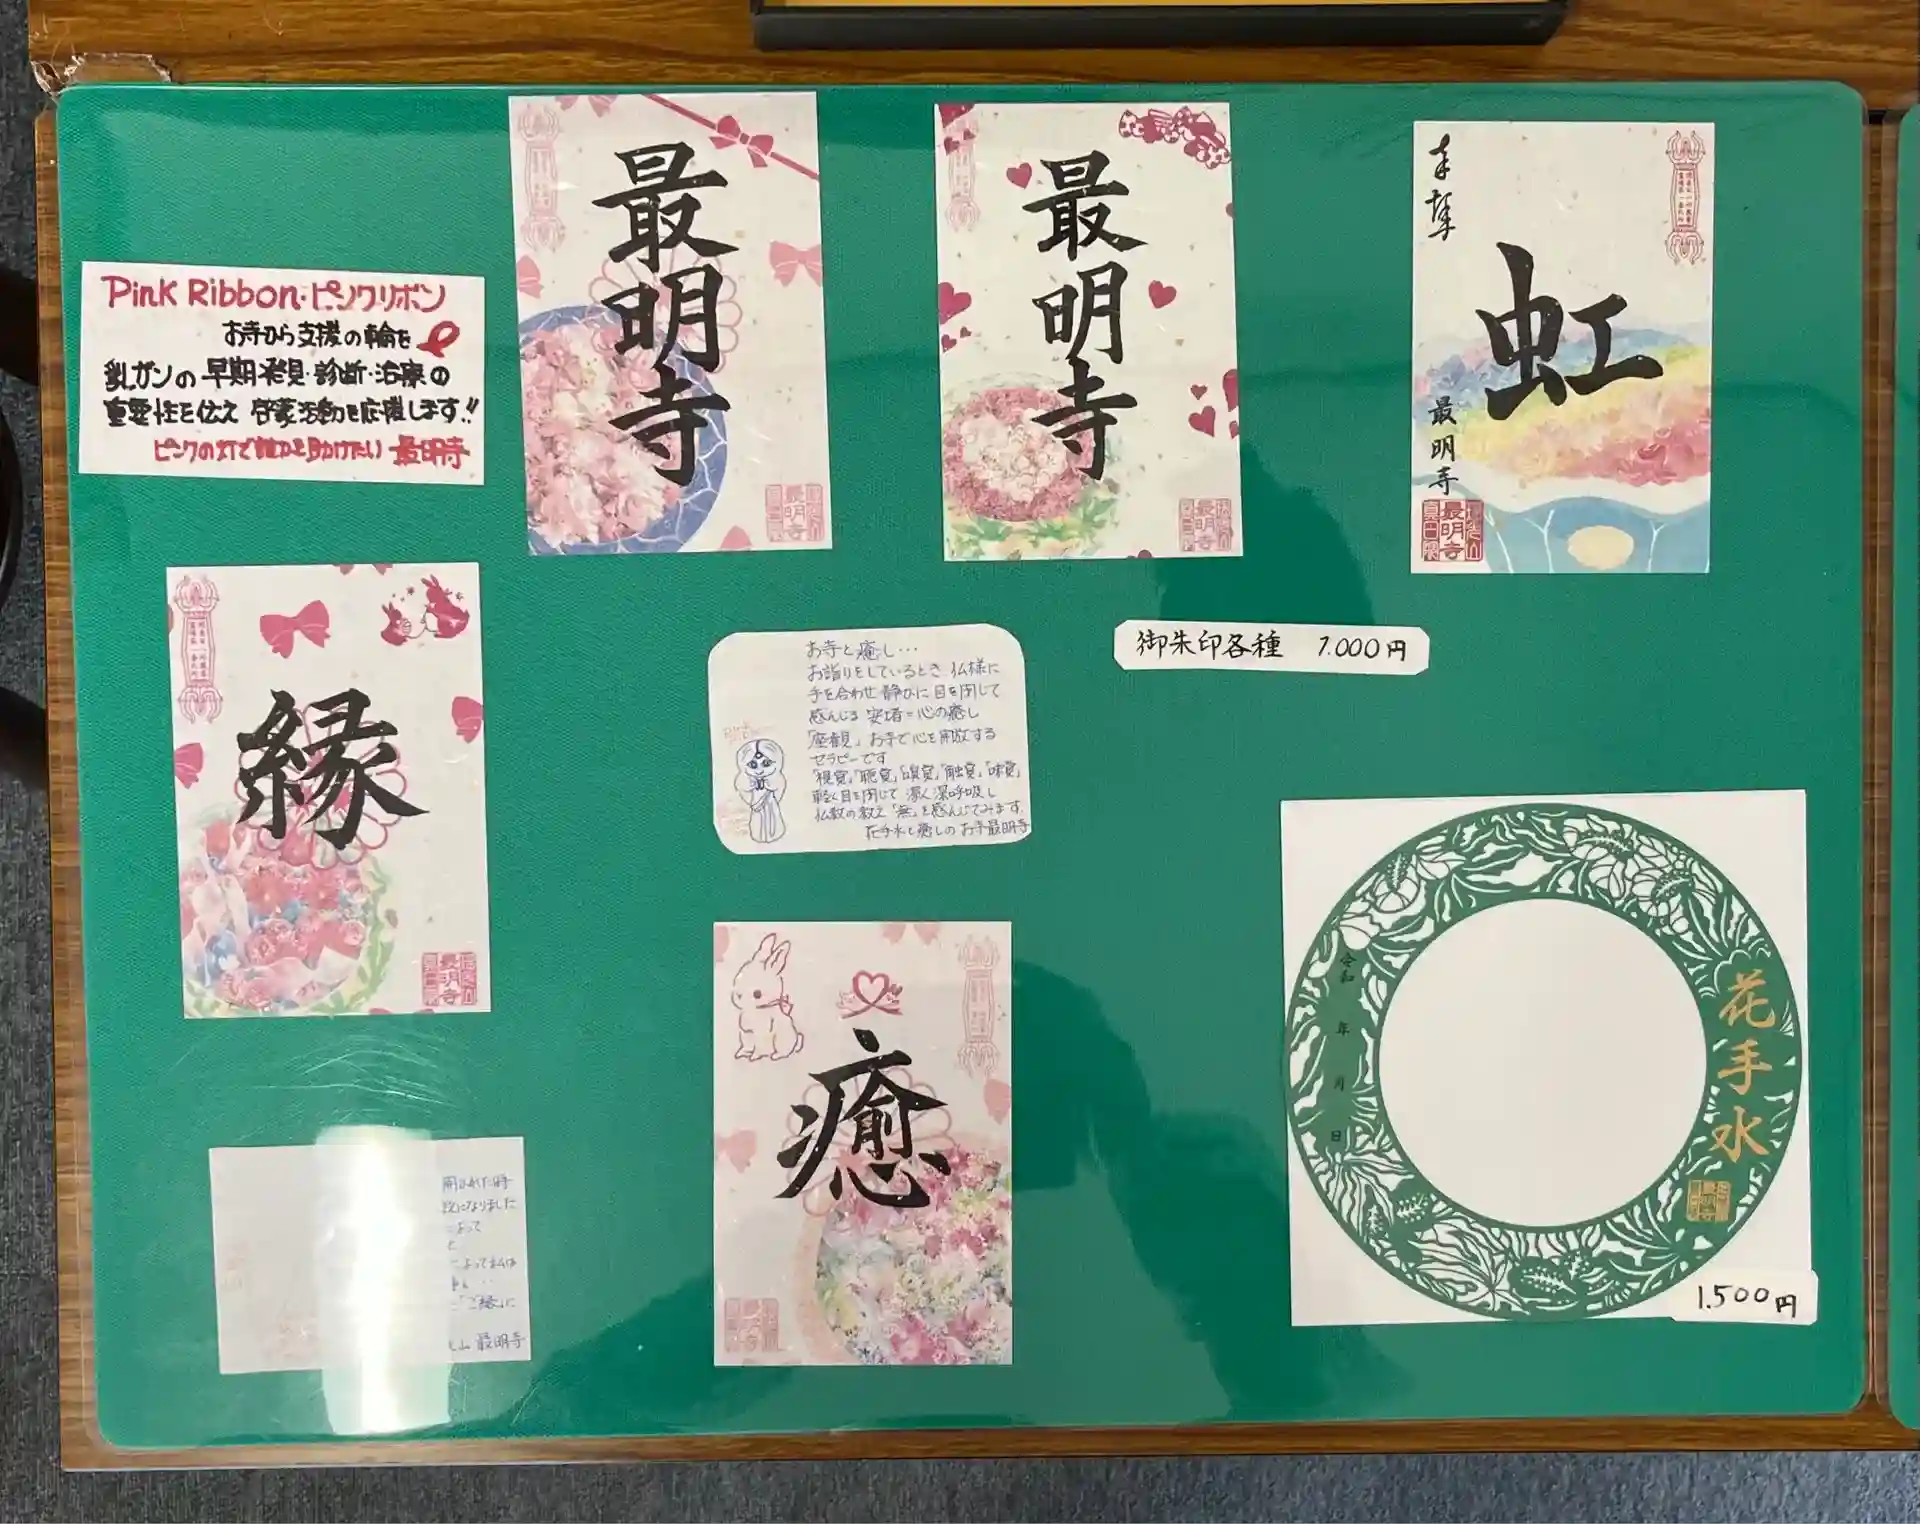 Pink Ribbon・ピンクリボン
お寺から支援の輪を
乳ガンの早期発見・診断・治療の
重要性を伝え 啓蒙活動を応援します!!
ピンクの灯で誰かを助けたい 最明寺
最明寺
最明寺
奉拝
虹
最明寺
最明寺
縁
最明寺
お寺と癒し…
お詣りをしているとき 仏様に
手を合わせ 静かに目を閉じて
感んじる 安堵=心の癒し
「座観」お寺で心を開放する
セラピーです
「視覚」「聴覚」「嗅覚」「触覚」「味覚」
軽く目を閉じて 深く深呼吸し
仏教の教え「無」を感んじてみます
花手水と癒しのお寺最明寺
御朱印各種 1.000円
癒
花手水
令和 年 月 日
1.500円
た時
になりました
よって
よって私は
「ご縁」に
山 最明寺